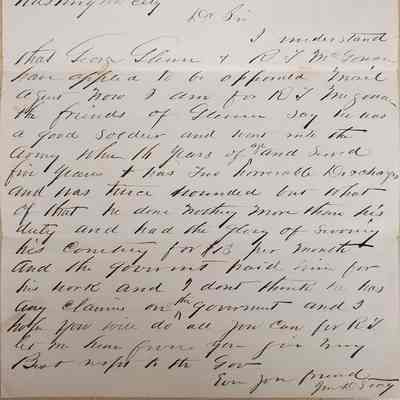 Washington City
Dr Sir
I understand
that George Glenn & R T McGowan
have applied to be appointed mail
agent now I am for R T Mcgowan
the friends of Glenn say he was
a good soldier and went into the
army when 14 years of age and served
five years & has two honorable Discharges
and was twice wounded but what
of that he done nothing more than his
duty and had the glory of serving
his country for $13 per month
and the goverment paid him for
his work and I dont think he has
any claims on the goverment and I
hope you will do all you can for R T
let me hear from you give my
Best respt to the Gov
Ever your friend